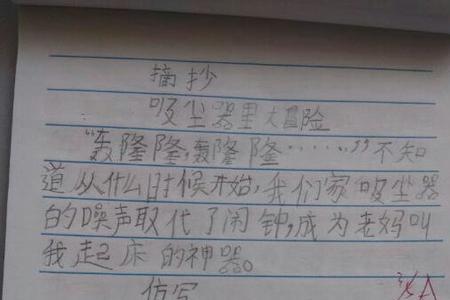 摘抄
吸尘器里大冒险
“轰隆隆,轰隆隆……”不知
道从什么时候开始,我们家吸尘器
的噪声取代了闹钟,成为老妈叫
我起床的神器。
仿写